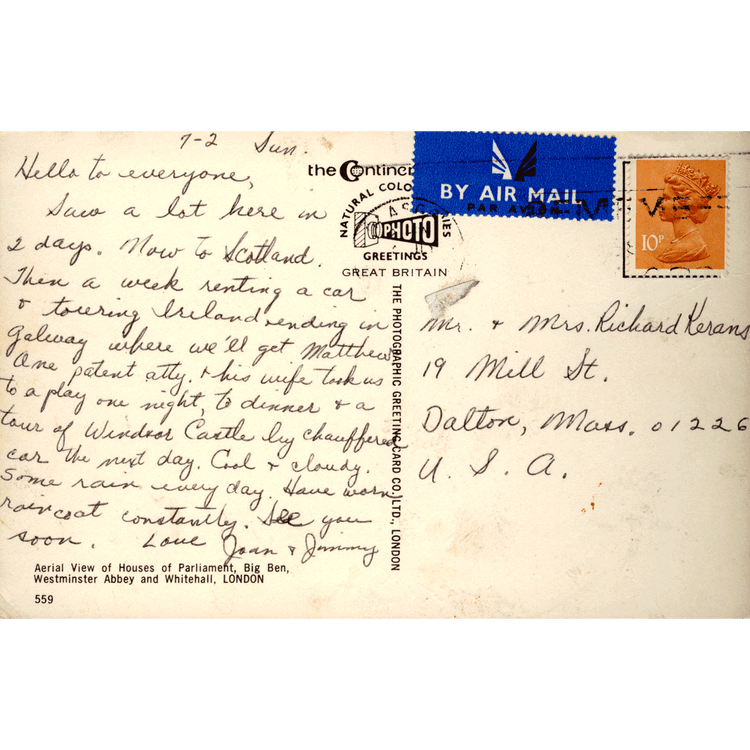 7-2 Sun.
Hello to everyone,
Saw a lot here in
2 days. Now to Scotland.
Then a week renting a car
& touring Ireland ending in
Galway where we'll get Matthew.
One patent atty. & his wife took us
to a play one night, to dinner & a
tour of Windsor Castle by chauffered
car the next day. Cool & cloudy.
Some rain every day. Have worn
raincoat constantly. See you
soon. Love Joan & Jimmy
Aerial View of Houses of Parliament, Big Ben,
Westminster Abbey and Whitehall, LONDON
559
the Continen
NATURAL COLO
GREETINGS
GREAT BRITAIN
THE PHOTOGRAPHIC GREETING CARD CO. LTD., LONDON
BY AIR MAIL
PAR AVION
10P
Mr. & Mrs. Richard Kerans
19 Mill St.
Dalton, Mass. 01226
U. S. A.